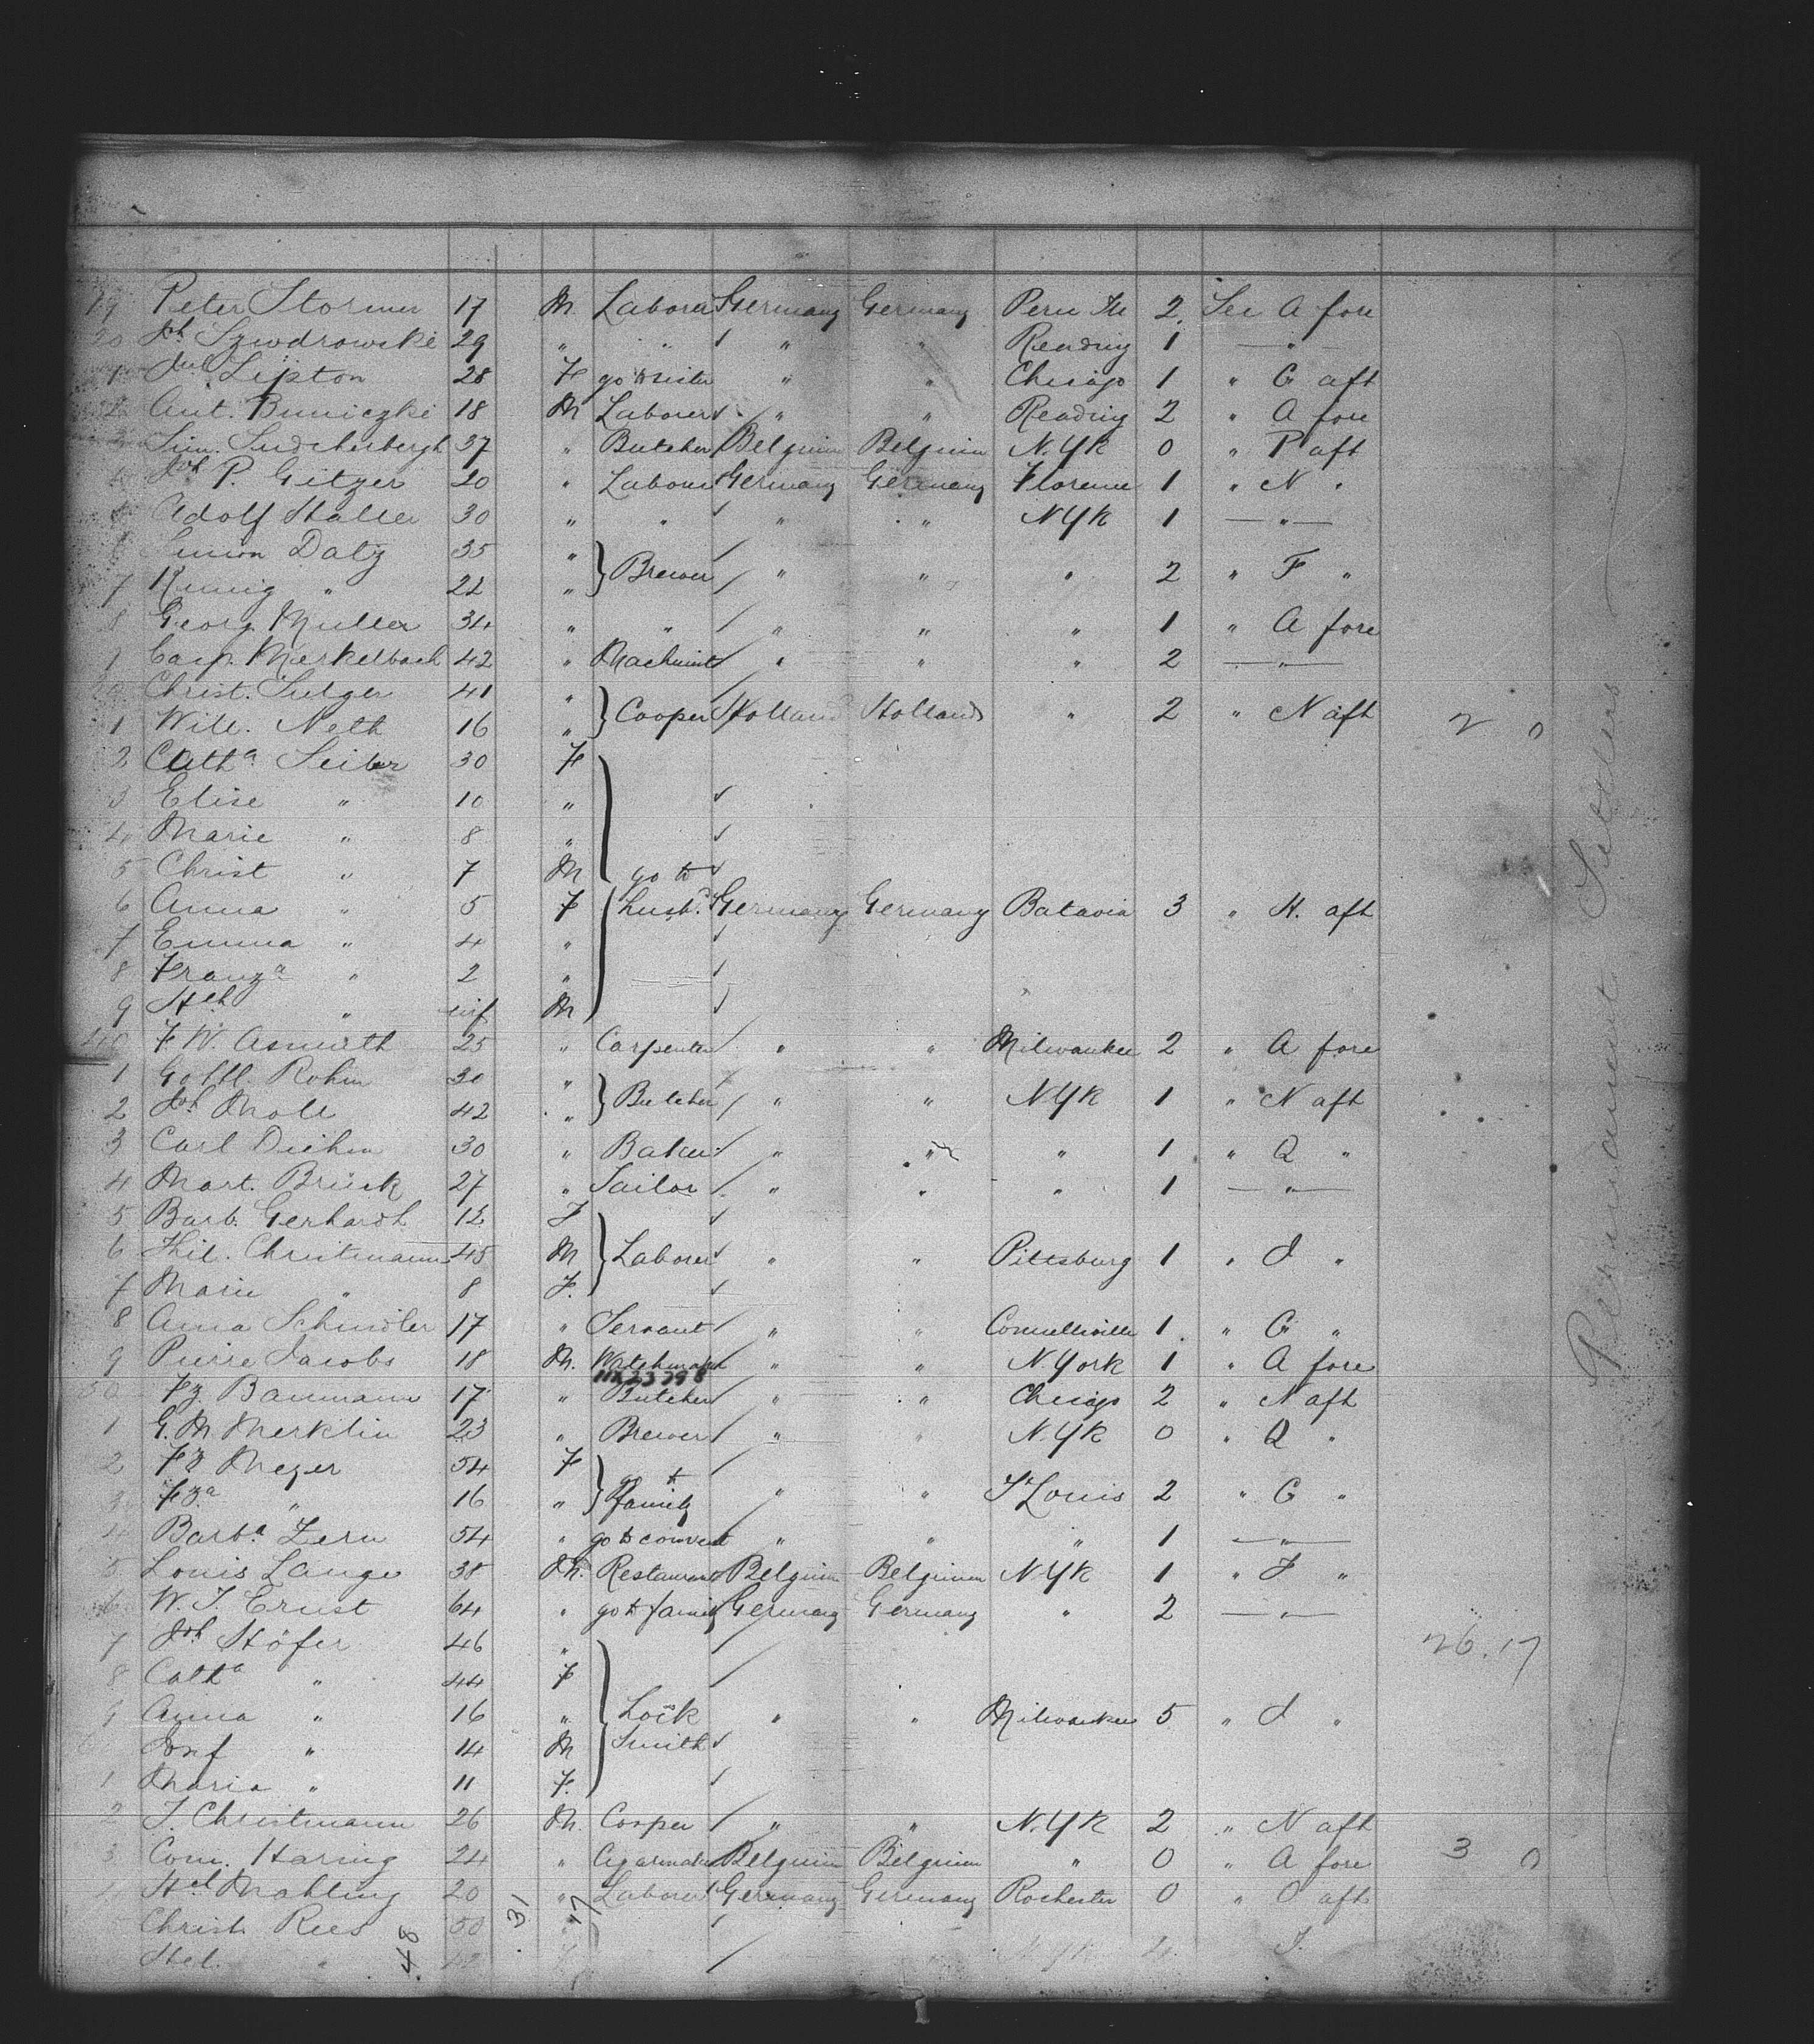 19 Peter Stormer 17 M. Laborer Germany Germany Peru Ill 2. See A fore
20 Joh Szwdrowski 29 " " " " Reading 1 — " —
1 Lipton 28 F go to sister " " Chicago 1 " G aft
2 Ant. Buniczki 18 M Laborer " " Reading 2 " A fore
3 Sim. 37 " Butcher Belgium Belgium N.YK 0 " P aft
4 Joh P. Gitzer 20 " Laborer Germany Germany Florence 1 " N "
5 Adolf Haller 30 " " " " NYK 1 — " —
6 Simon Datz 35 "
Brewer " " " 2 " F "
7 " 22 "
8 Georg Muller 34 " " " " " 1 " A fore
1 Casp. Merkelbach 42 " Machinist " " " 2 — " —
30 Christ. Sulger 41 "
Cooper Holland Holland " 2 " N aft 2 0
1 Will. Neth 16 "
2 Cath a Seiber 30 F
3 Elise " 10 "
4 Marie " 8 "
5 Christ " 7 M go to
6 Anna " 5 F husbd. Germany Germany Batavia 3 " H. aft
7 Emma " 4 "
8 Franz a " 2 "
9 Hch " inf M
40 F. W. Asmuth 25 " Carpenter " " Milwaukee 2 " A fore
1 Gottl. Rohm 30 "
Butcher " " NYK 1 " N aft
2 Joh Moll 42 "
3 Carl Diehm 30 " Baker " " " 1 " Q "
4 Mart. Brück 27 " Tailor " " " 1 — " —
5 Barb. Gerhardt 12 F
6 Phil. Christmann 45 M Laborer " " Pittsburg 1 " J "
7 Marie " 8 F.
8 Anna Schindler 17 " Servant " " Connellsville 1 " G "
9 Pierre Jacobs 18 M. Watchmaker " " N.York 1 " A fore
11X23798
50 Fz Baumann 17 " Butcher " " Chicago 2 " N aft
1 G. M. Merklin 23 " Brewer " " N.YK 0 " Q "
2 Fz Meyer 54 F
go to family " " St Louis 2 " G "
3 Fza " 16 "
4 Barba Zern 54 " go to convent " " " 1 — " —
5 Louis Lange 38 M. Restaurant Belgium Belgium NYK 1 " F "
6 W. J. Ernst 64 " go to family Germany Germany " 2 — " —
7 Joh Höfer 46 " 26. 17
8 Catha " 44 F
9 Anna " 16 " Lock " " Milwaukee 5 " J "
Josef " 14 M Smith
1 Maria " 11 F.
2 J. Christmann 26 M. Cooper " " N.YK 2 " N aft
3 Corn. Haring 24 " Cigarmaker Belgium Belgium " 0 " A fore 3 0
4 Hch Mahling 20 " Laborer Germany Germany Rochester 0 " O aft
5 Christ. Rees 50 "
Hel. " 42 F NYK 4
48 31 17
Permanent Settlers